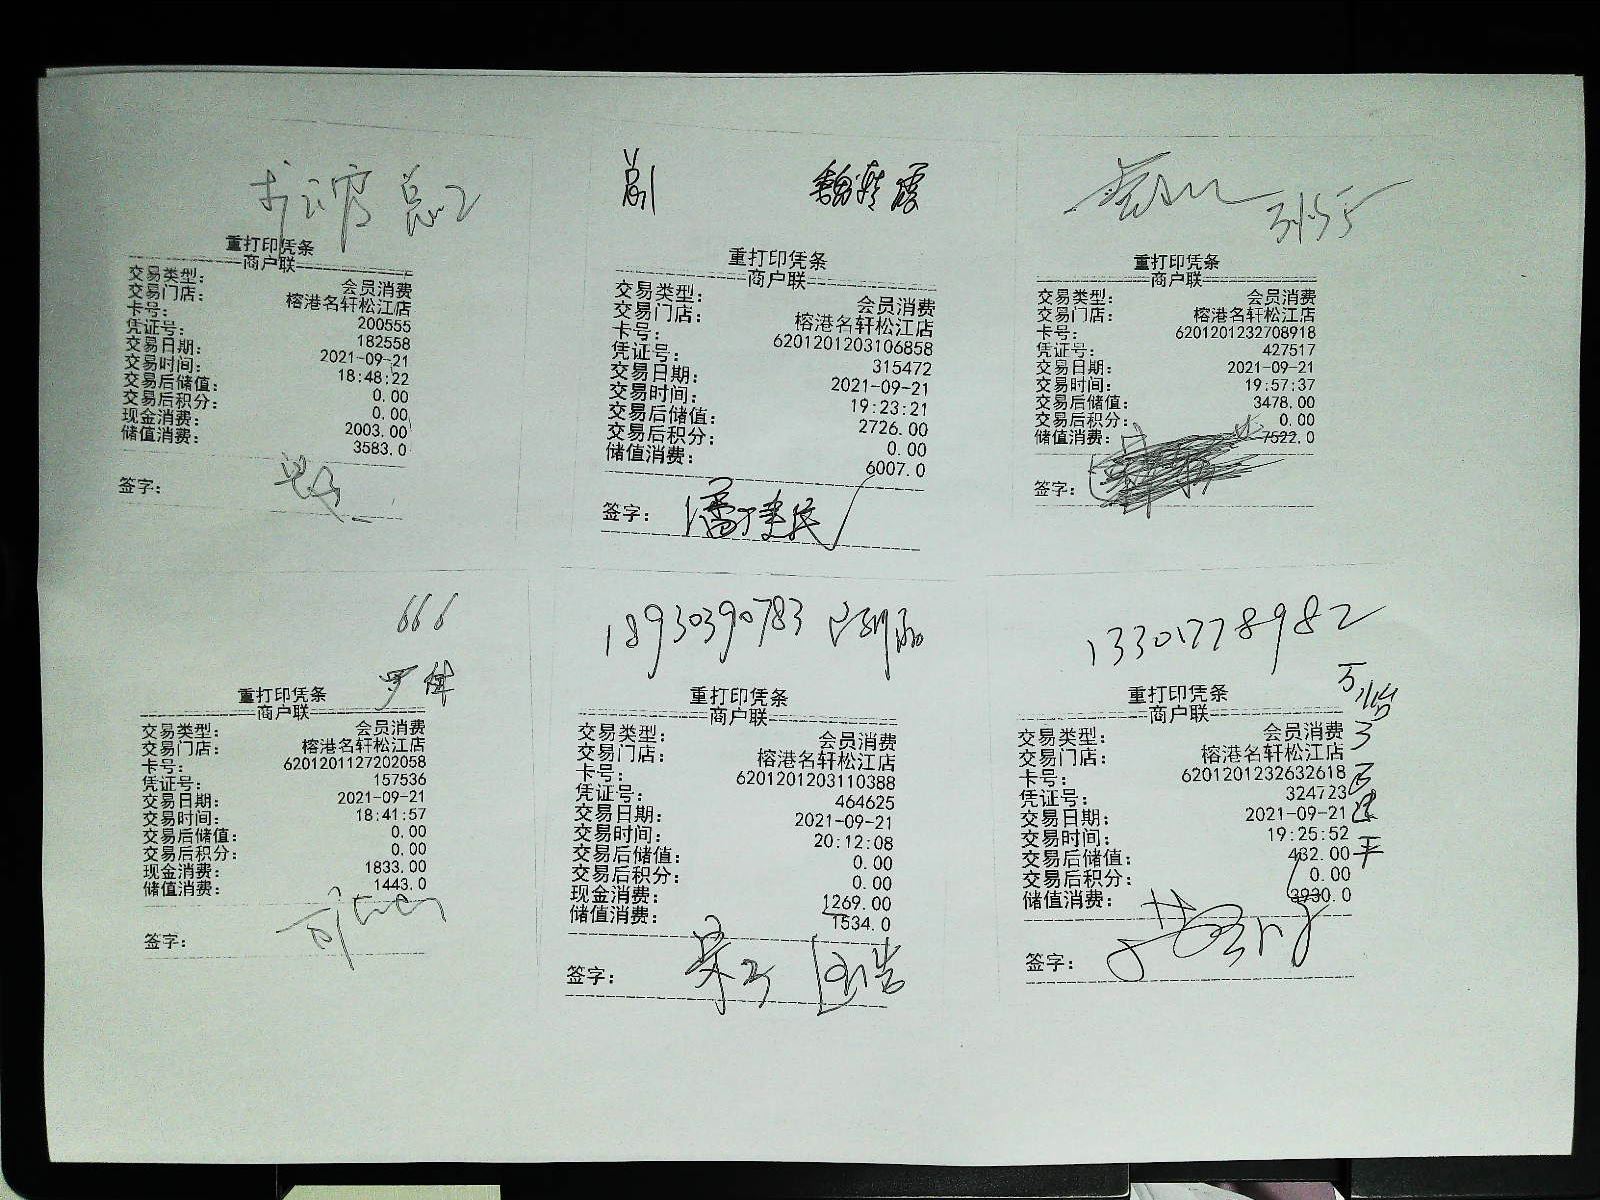 总2
重打印凭条
商户联
交易类型： 会员消费
交易门店： 榕港名轩松江店
卡号： 200555
凭证号： 182558
交易日期： 2021-09-21
交易时间： 18:48:22
交易后储值： 0.00
交易后积分： 0.00
现金消费： 2003.00
储值消费： 3583.0
签字：
魏精霞
重打印凭条
商户联
交易类型： 会员消费
交易门店： 榕港名轩松江店
卡号： 6201201203106858
凭证号： 315472
交易日期： 2021-09-21
交易时间： 19:23:21
交易后储值： 2726.00
交易后积分： 0.00
储值消费： 6007.0
签字：
重打印凭条
商户联
交易类型： 会员消费
交易门店： 榕港名轩松江店
卡号： 6201201232708918
凭证号： 427517
交易日期： 2021-09-21
交易时间： 19:57:37
交易后储值： 3478.00
交易后积分： 0.00
储值消费： 7522.0
签字：
666
罗伟
重打印凭条
商户联
交易类型： 会员消费
交易门店： 榕港名轩松江店
卡号： 6201201127202058
凭证号： 157536
交易日期： 2021-09-21
交易时间： 18:41:57
交易后储值： 0.00
交易后积分： 0.00
现金消费： 1833.00
储值消费： 1443.0
签字：
18930390783
重打印凭条
商户联
交易类型： 会员消费
交易门店： 榕港名轩松江店
卡号： 6201201203110388
凭证号： 464625
交易日期： 2021-09-21
交易时间： 20:12:08
交易后储值： 0.00
交易后积分： 0.00
现金消费： 1269.00
储值消费： 1534.0
签字：
13301778982
重打印凭条
商户联
交易类型： 会员消费
交易门店： 榕港名轩松江店
卡号： 6201201232632618
凭证号： 324723
交易日期： 2021-09-21
交易时间： 19:25:52
交易后储值： 432.00
交易后积分： 0.00
储值消费： 3930.0
签字：